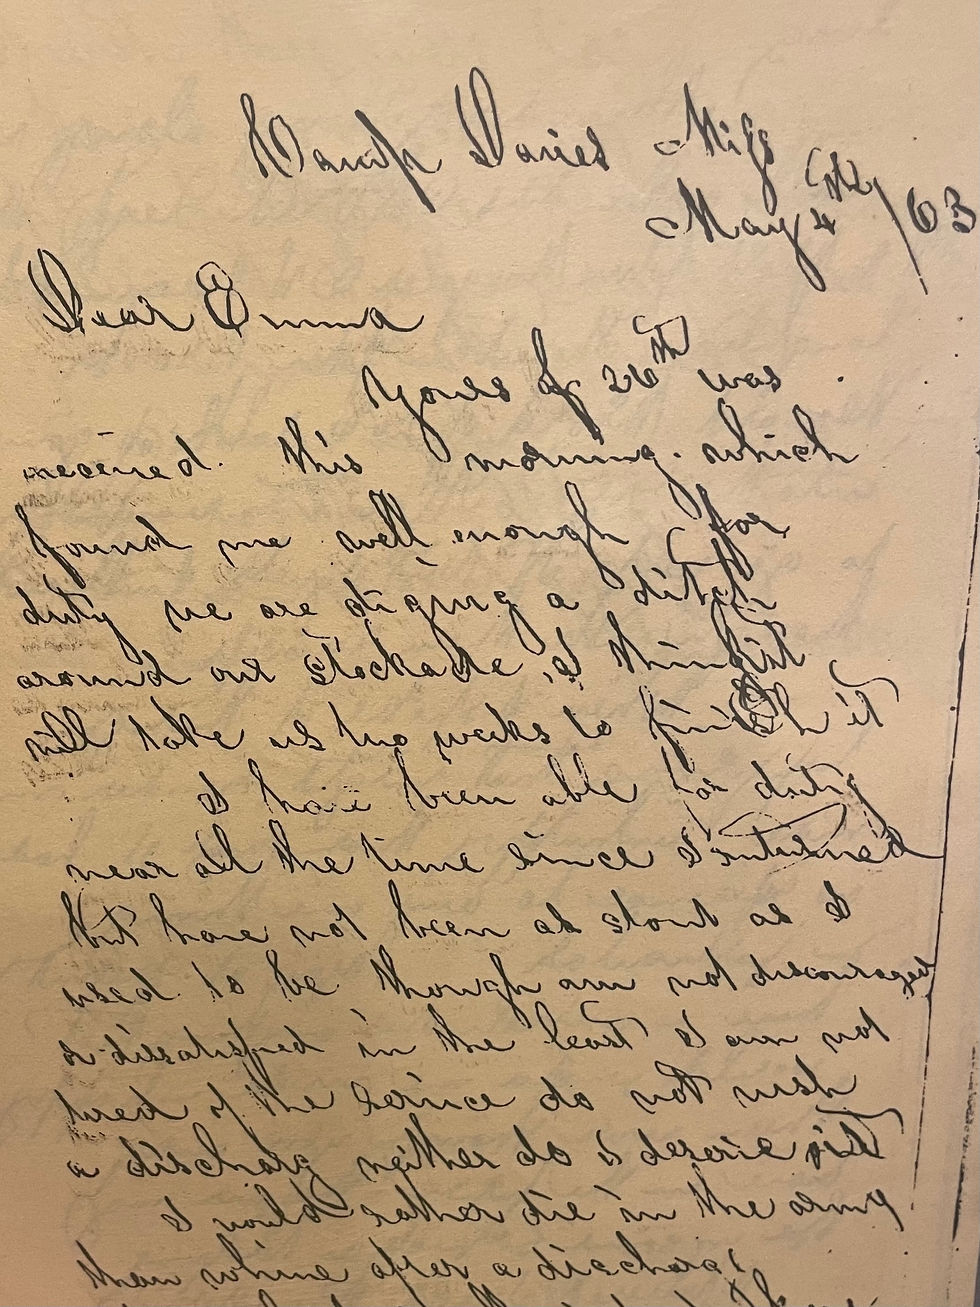 Camp Davies Miss
May 4th /63
Dear Emma
Yours of 26th was
received this morning. which
found me well enough for
duty we are diging a ditch
around our stockade, I think it
will take us two weeks to finish it
I have been able for duty
near all the time since I returned
but have not been as stout as I
used to be though am not discouraged
or dissatisfied in the least I am not
tired of the service do not wish
a discharg neither do I deserve it
I would rather die in the army
than whine after a discharg